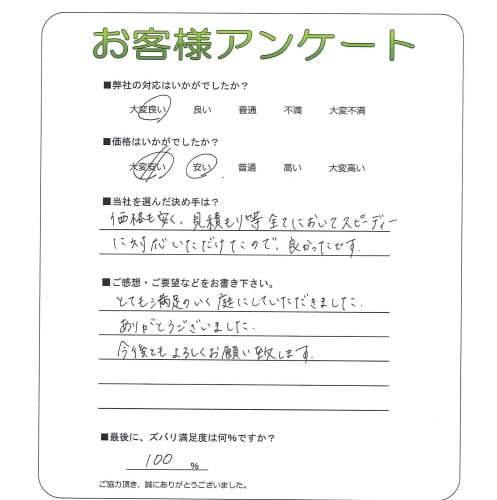 お客様アンケート
■弊社の対応はいかがでしたか?
大変良い 良い 普通 不満 大変不満
■価格はいかがでしたか?
大変安い 安い 普通 高い 大変高い
■当社を選んだ決め手は?
価格も安く、見積もり等全てにおいてスピーディー
に対応いただけたので、良かったです.
■ご感想・ご要望などをお書き下さい。
とても満足のいく庭にしていただきました.
ありがとうございました.
今後ともよろしくお願い致します.
■最後に、ズバリ満足度は何%ですか?
100 %
ご協力頂き、誠にありがとうございました。